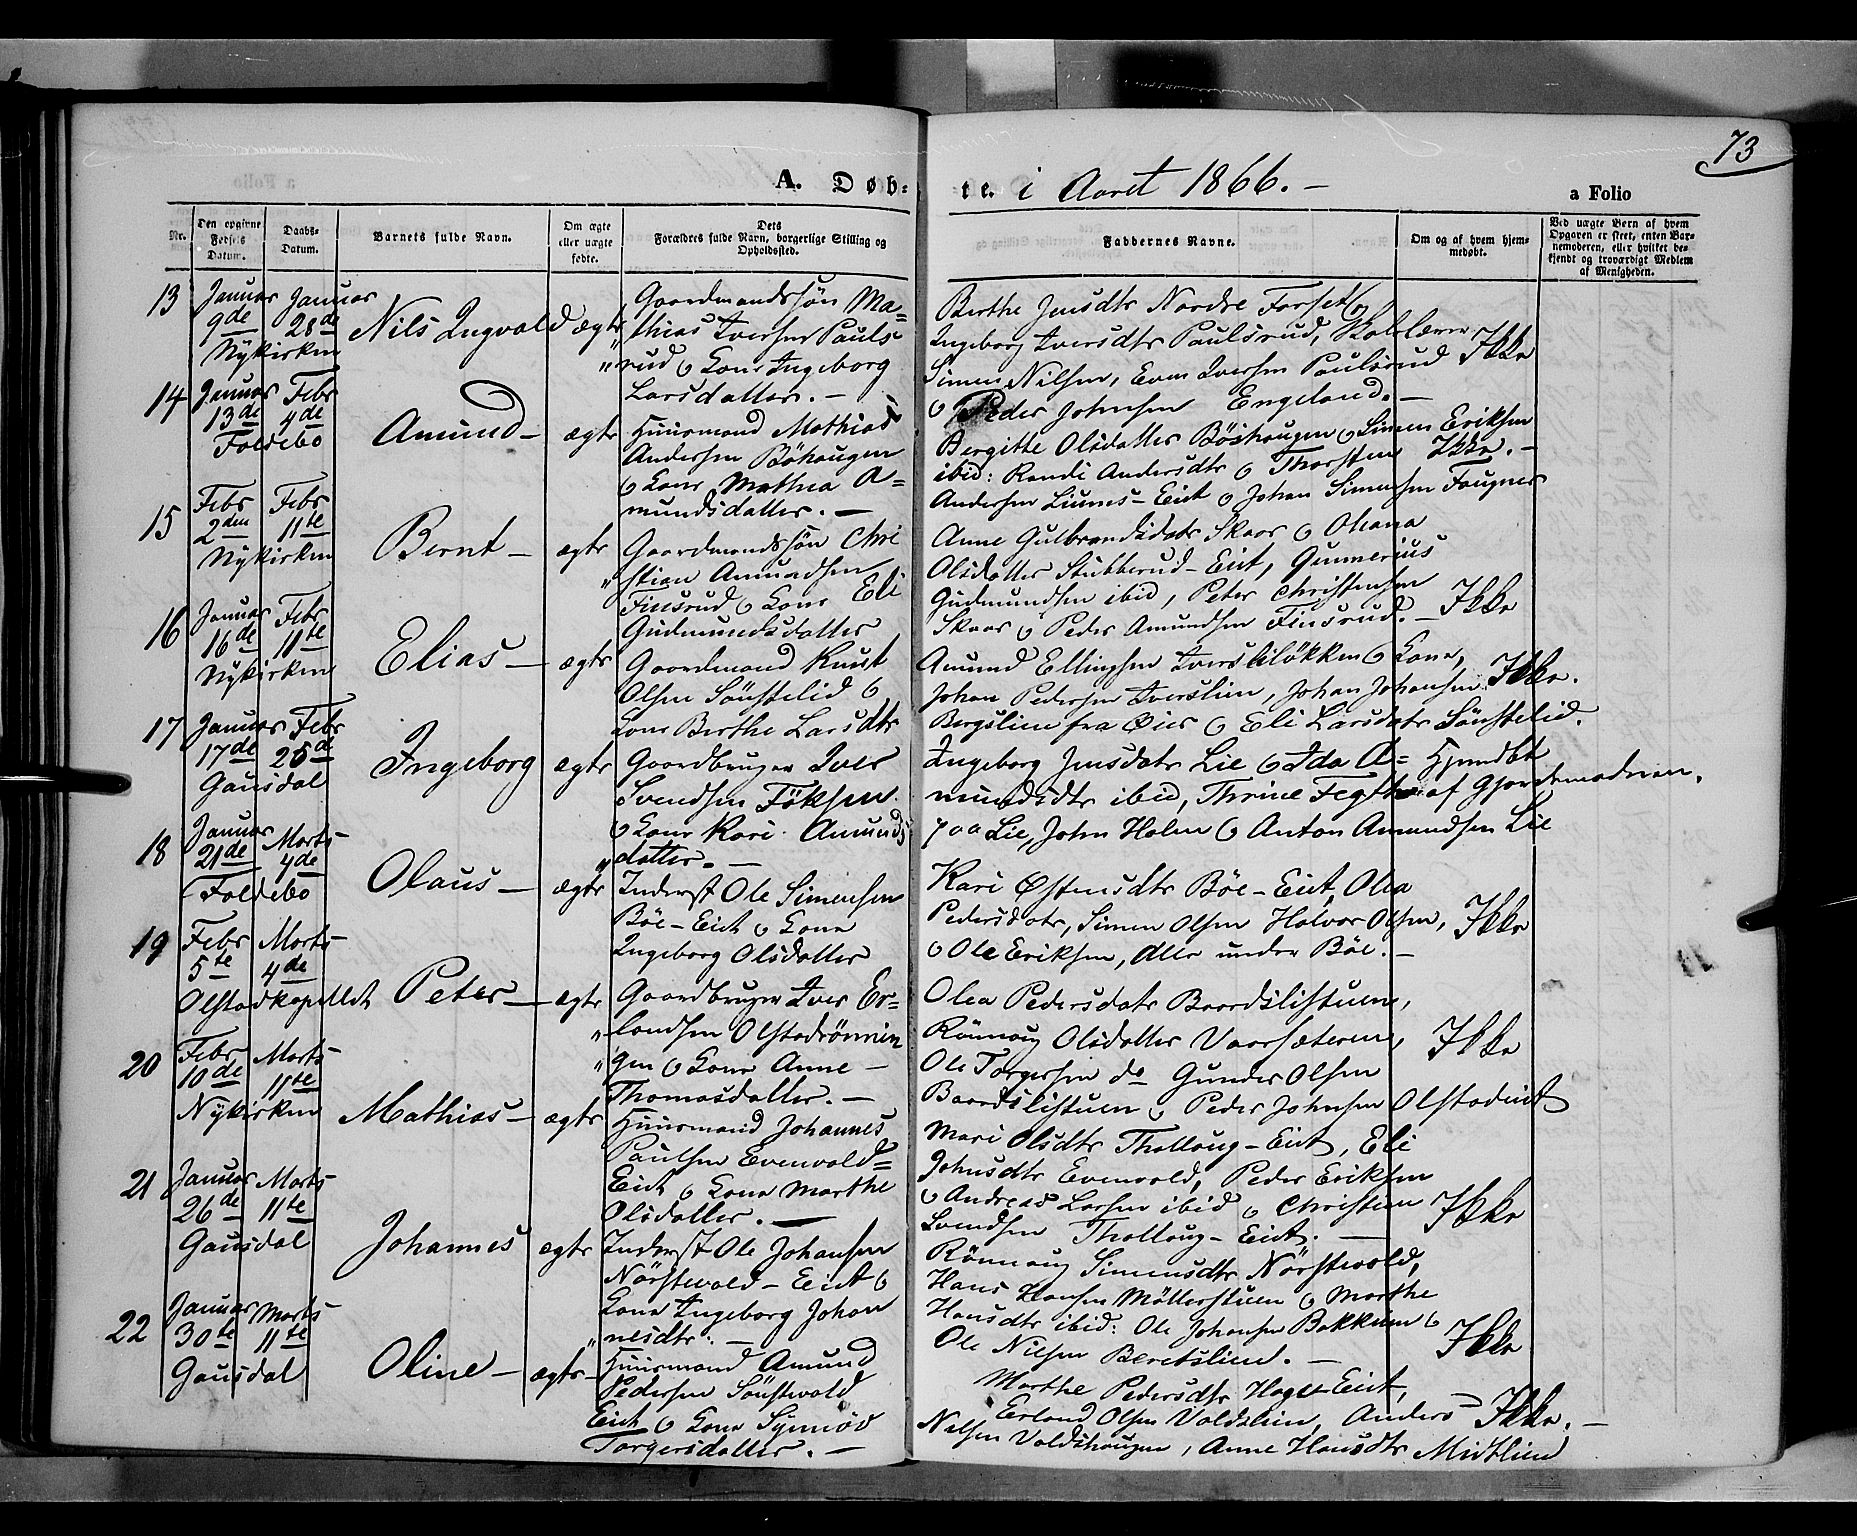 73
A. Døb-te. i Aaret 1866. –
a Folio
Nr.
Den opgivne Fødsels Datum.
Daabs-Datum.
Barnets fulde Navn.
Om ægte eller uægte fødte.
Dets Forældres fulde Navn, borgerlige Stilling og Opholdssted.
Faddernes Navne.
Om og af hvem hjemmedøbt.
Ved uægte Børn af hvem Opgaven er skeet, enten Barnemoderen, eller hvilket bekjendt og troværdigt Medlem af Menigheden.
13
Januar 9de
Januar 28de
Nykirken
Nils Ingvald
ægte
Gaardmandssøn Ma=
thias Iversen Pauls
rud & Kone Ingeborg
Larsdatter. –
Berthe Jensdtr Nordre Forset &
Ingeborg Iversdtr Paulsrud, Skolelærer
Simen Nilsen, Even Iversen Paulsrud
& Peder Johnsen Engeland. –
Ikke
14
Januar 13de
Febr 4de
Foldebo
Amund –
ægte
Huusmand Mathias
Andersen Böhaugen
& Kone Mathea A=
mundsdatter. –
Bergitte Olsdatter Böshaugen & Simen Eriksen
ibid: Randi Andersdtr & Thorsten
Andersen Liumes-Eiet & Johan Simensen Faugner
Ikke. –
15
Febr 2den
Febr 11te
Nykirken
Bernt –
ægte
Gaardmandssøn Chri
stian Amundsen
Finsrud & Kone Eli
Gudmundsdatter
Anne Gulbrandsdatr Skaar & Oleana
Olsdatter Stubberud-Eiet, Gunnerius
Gudmundsen ibid, Peter Christensen
Skaar & Peder Amundsen Finsrud. –
Ikke
16
Januar 16de
Febr 11te
Nykirken
Elias –
ægte
Gaardmand Knut
Olsen Sönstelid &
Kone Berthe Larsdtr
Amund Ellingsen Iversliløkken & Kone,
Johan Pedersen Iverslien, Johan Johansen
Bergslien fra Øier & Eli Larsdatr Sönstelid.
Ikke.
17
Januar 17de
Febr 25de
Gausdal
Ingeborg
ægte
Gaardbruger Iver
SvendsenFöksen
& Kone Kari Amunds
datter. –
Ingeborg Jensdatr Lie & Ida A=
mundsdtr ibid, Thrine Fegth
paa Lie, John Holen & Anton Amundsen Lie
Hjemdbt
af Gjordemodren.
18
Januar 21de
Marts 4de
Foldebo
Olaus –
ægte
Inderst Ole Simensen
Böe-Eiet & Kone
Ingeborg Olsdatter
Kari Østensdtr Böe-Eiet, Olea
Pedersdatr, Simen Olsen Halvor Olsen,
& Ole Eriksen, Alle under Böe. –
Ikke
19
Febr 5te
Marts 4de
Olstadkapellet
Peter –
ægte
Gaardbruger Iver Er=
landsen Olstadrönnin
gen & Kone Anne –
Thomasdatter. –
Olea Pedersdatr Baardslistuen,
Rönnaug Olsdatter Vaarsæteren,
Ole Torgersen do Gunder Olsen
Baardslistuen & Peder Johnsen Olstadeiet
Ikke
20
Febr 10de
Marts 11te
Nykirken
Mathias –
ægte
Huusmand Johannes
Paulsen Evenvold=
Eiet & Kone Marthe
Olsdatter. –
Mari Olsdtr Thallaug-Eiet, Eli
Johnsdtr Evenvold, Peder Eriksen
& Andreas Larsen ibid & Christian
Svendsen Thallaug-Eiet. –
Ikke
21
Januar 26de
Marts 11te
Gausdal
Johannes
ægte
Inderst Ole Johansen
Nörstevold-Eiet &
Kone Ingeborg Johan
nesdtr. –
Rönnaug Simensdtr Nörstevold,
Hans Hansen Möllerstuen & Marthe
Hansdtr ibid: Ole Johansen Bakken &
Ole Nilsen Beretslien. –
Ikke
22
Januar 30te
Marts 11te
Gausdal
Oline –
ægte –
Huusmand Amund
Pedersen Sönstevold
Eiet & Kone Synnöv
Torgersdatter. –
Marthe Pedersdtr Hage-Eiet,
Erland Olsen Voldslien, Anders
Nilsen Voldshaugen, Anne Hansdtr Midtlien
Ikke. –